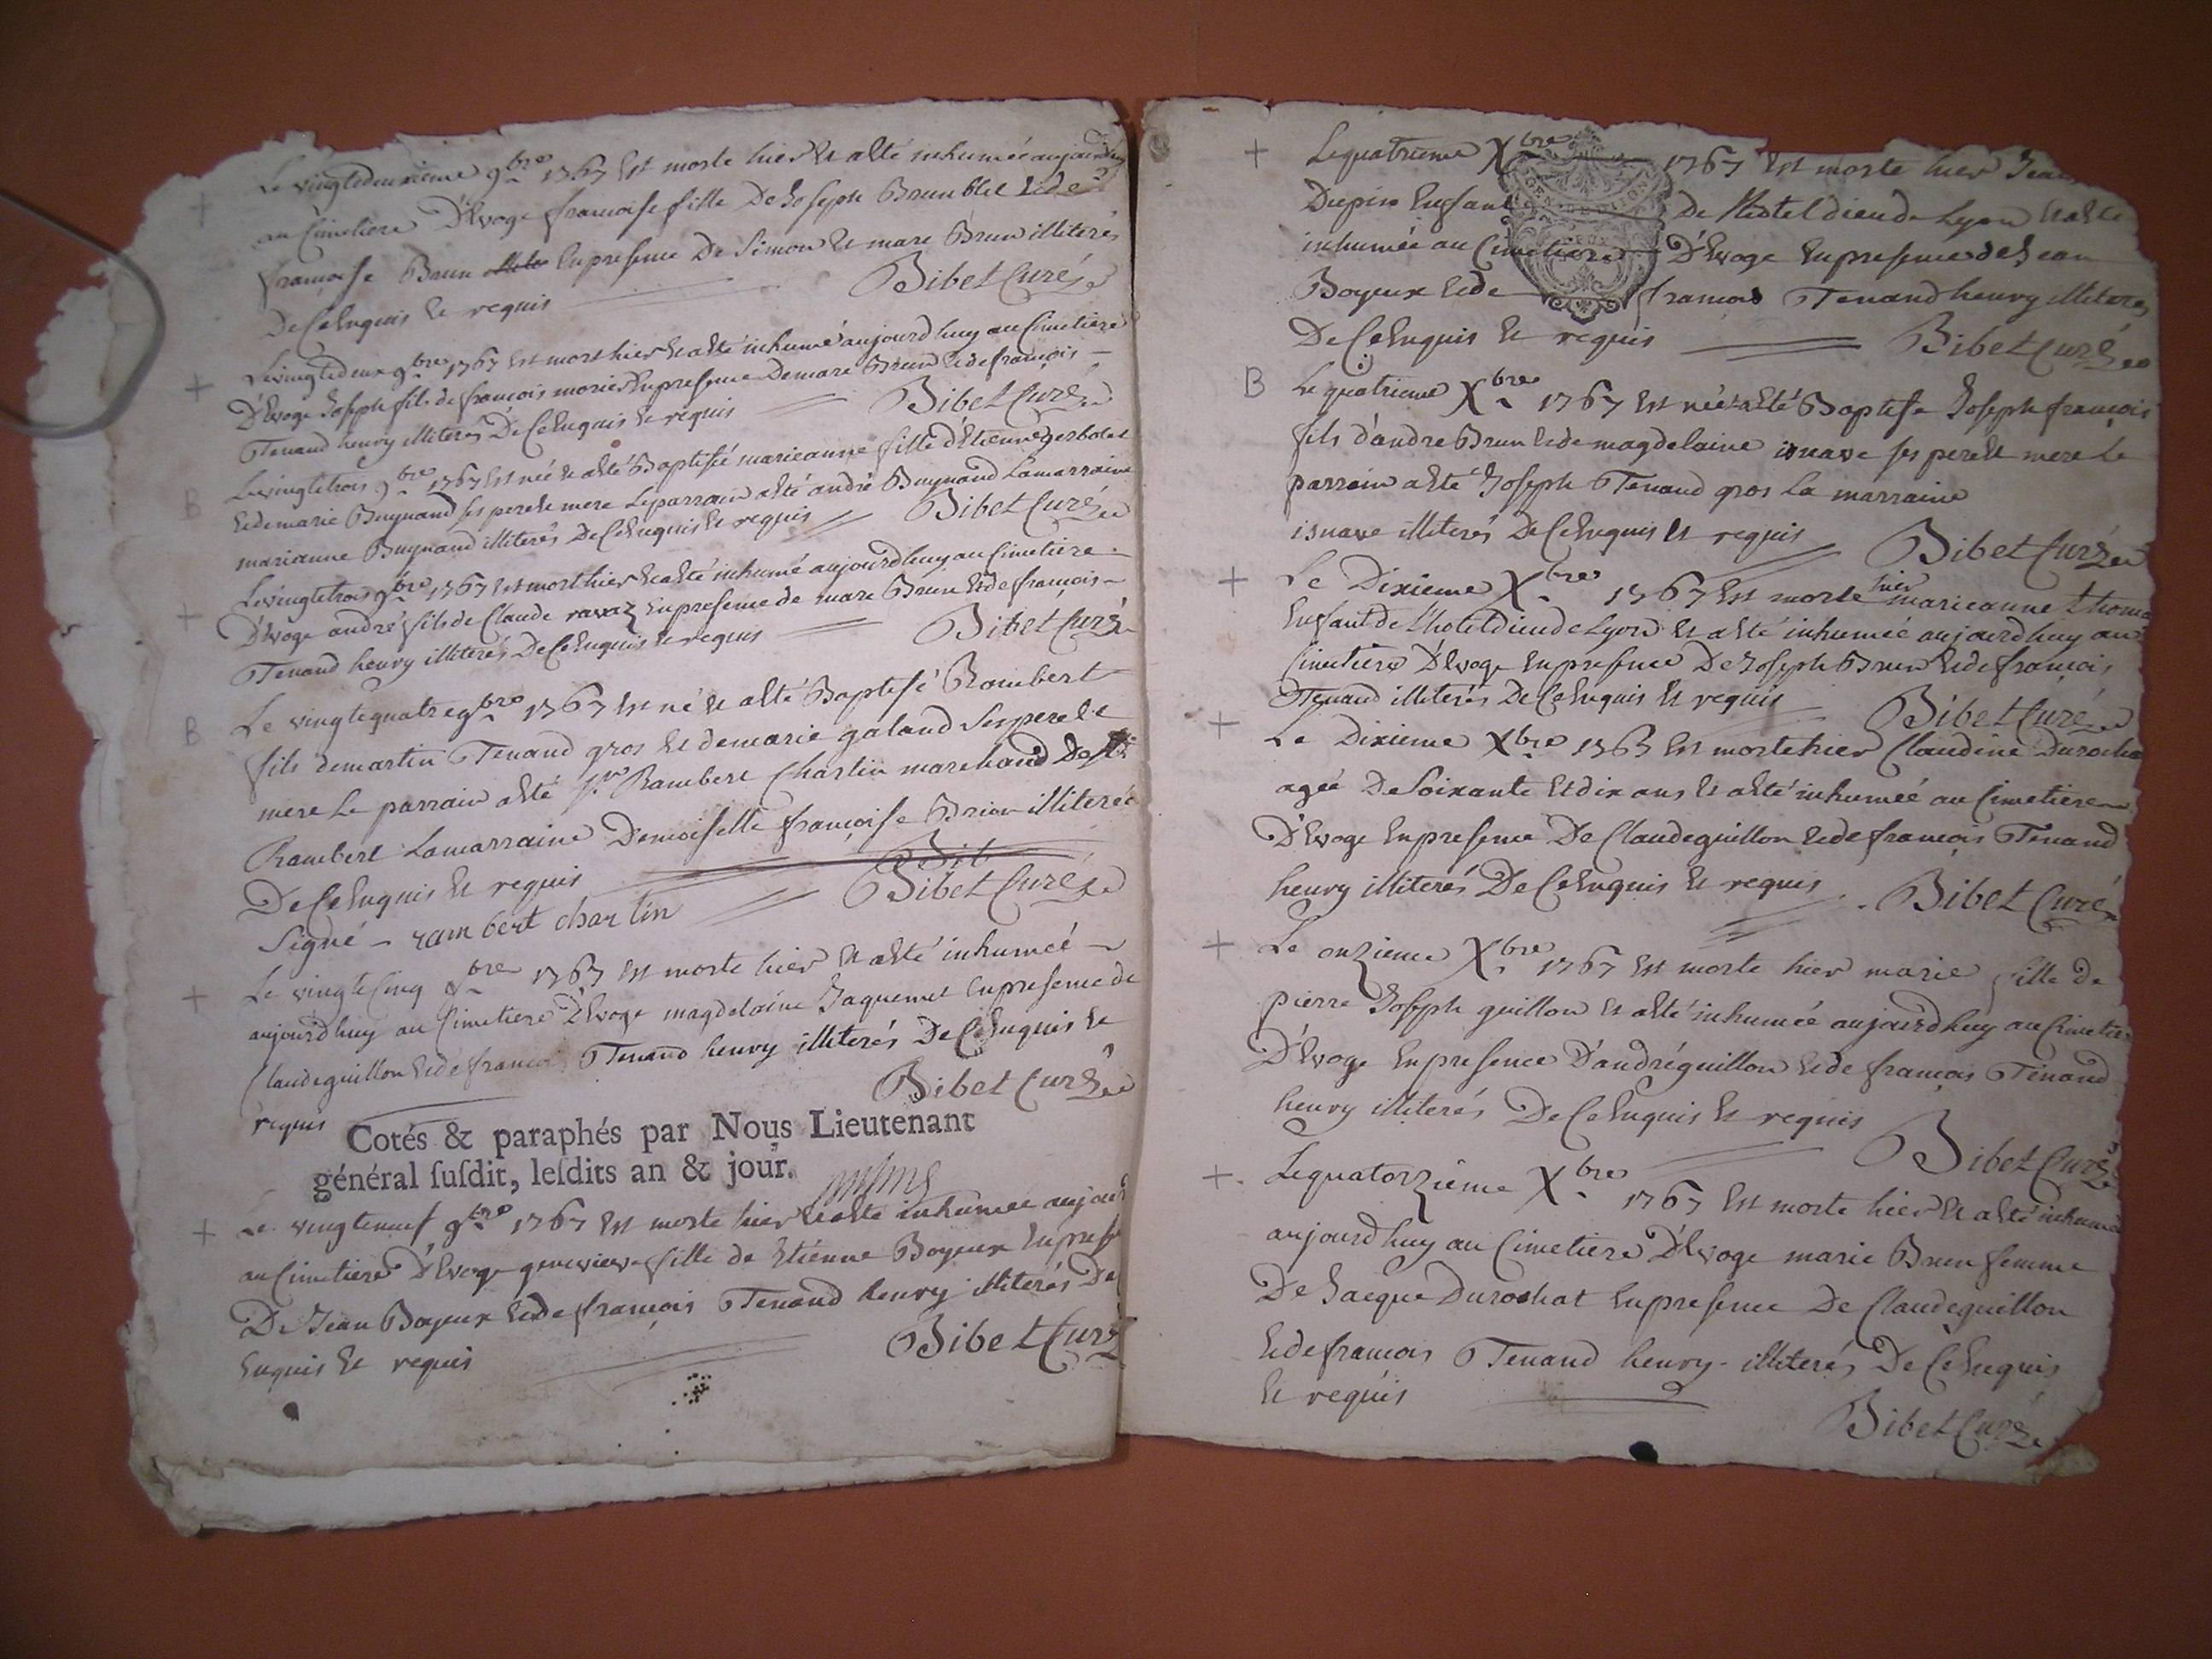 + Le vingtedeuxieme 9bre 1767 Est morte hier Et aEté inhumée aujourdhuy
au Cimetiere D'Evoge francoise fille De Joseph Brun Et de
francoise Brun En presence De Simon Et marc Brun illiterés
De Ce Enquis Et requis Bibet Curé
+ Le vingtedeux 9bre 1767 Est mort hier Et aEté inhumé aujourdhuy au Cimetiere
D'Evoge Joseph fils de francois En presence De marc Brun Et de françois
Tenand henry illiterés De Ce Enquis Et requis Bibet Curé
B Le vingtetrois 9bre 1767 Est née Et aEté Baptisée marieanne fille d'Etienne
Et de marie Buynand ses pere Et mere Le parrain aEté andré Buynand La marraine
marianne Buynand illiterés De Ce Enquis Et requis Bibet Curé
+ Le vingtetrois 9bre 1767 Est mort hier Et aEté inhumé aujourdhuy au Cimetiere
D'Evoge andré fils de Claude ravaz En presence de marc Brun Et de francois
Tenand henry illiterés De Ce Enquis Et requis Bibet Curé
B Le vingtequatre 9bre 1767 Est né Et aEté Baptisé Rambert
fils de martin Tenand gros Et de marie galand Ses pere Et
mere Le parrain aEté Sr Rambert Charlin marchand De St
Rambert La marraine Demoiselle françoise Brian illiterée
De Ce Enquis Et requis Bib
Signé rambert charlin Bibet Curé
+ Le vingtecinq 9bre 1767 Est morte hier Et aEté inhumée
aujourdhuy au Cimetiere D'Evoge magdelaine Jaquemet En presence de
Claude guillon Et de francois Tenand henry illiterés De Ce Enquis Et
requis Bibet Curé
Cotés & paraphés par Nous Lieutenant
général susdit, lesdits an & jour.
+ Le vingteneuf 9bre 1767 Est morte hier Et aEté inhumée aujour
au Cimetiere D'Evoge genevieve fille de Etienne Boyeux En prese
De Jean Boyeux Et de françois Tenand henry illiterés De
Enquis Et requis Bibet Curé
+ Le quatrieme Xbre 1767 Est morte hier
Dupin Enfant De Hotel dieu de Lyon Et aEté
inhumée au Cimetiere D'Evoge En presence de Jean
Boyeux Et de francois Tenand henry illiteres
De Ce Enquis Et requis Bibet Curé
B Le quatrieme Xbre 1767 Est né Et aEté Baptise Joseph françois
fils d'andre Brun Et de magdelaine isnave ses pere Et mere Le
parrain aEté Joseph Tenand gros La marraine
isnave illiterés De Ce Enquis Et requis Bibet Curé
+ Le Dixieme Xbre 1767 Est morte hier marieanne thoma
Enfant de L'hotel dieu de Lyon Et aEté inhumée aujourdhuy au
Cimetiere D'Evoge En presence De Joseph Brun Et de françois
Tenand illiterés De Ce Enquis Et requis Bibet Curé
+ Le Dixieme Xbre 1767 Est morte hier Claudine Durocha
agée De Soixante Et dix ans Et aEté inhumée au Cimetiere
D'Evoge En presence De Claude guillon Et de francois Tenand
henry illiterés De Ce Enquis Et requis Bibet Curé
+ Le onzieme Xbre 1767 Est morte hier marie fille de
pierre Joseph guillon Et aEté inhumée aujourdhuy au Cimetier
D'Evoge En presence D'andré guillon Et de francois Tenand
henry illiterés De Ce Enquis Et requis Bibet Curé
+ Le quatorzieme Xbre 1767 Est morte hier Et aEté inhumée
aujourdhuy au Cimetiere D'Evoge marie Brun femme
De Jacque Durochat En presence De Claude guillon
Et de francois Tenand henry illiterés De Ce Enquis
Et requis Bibet Curé